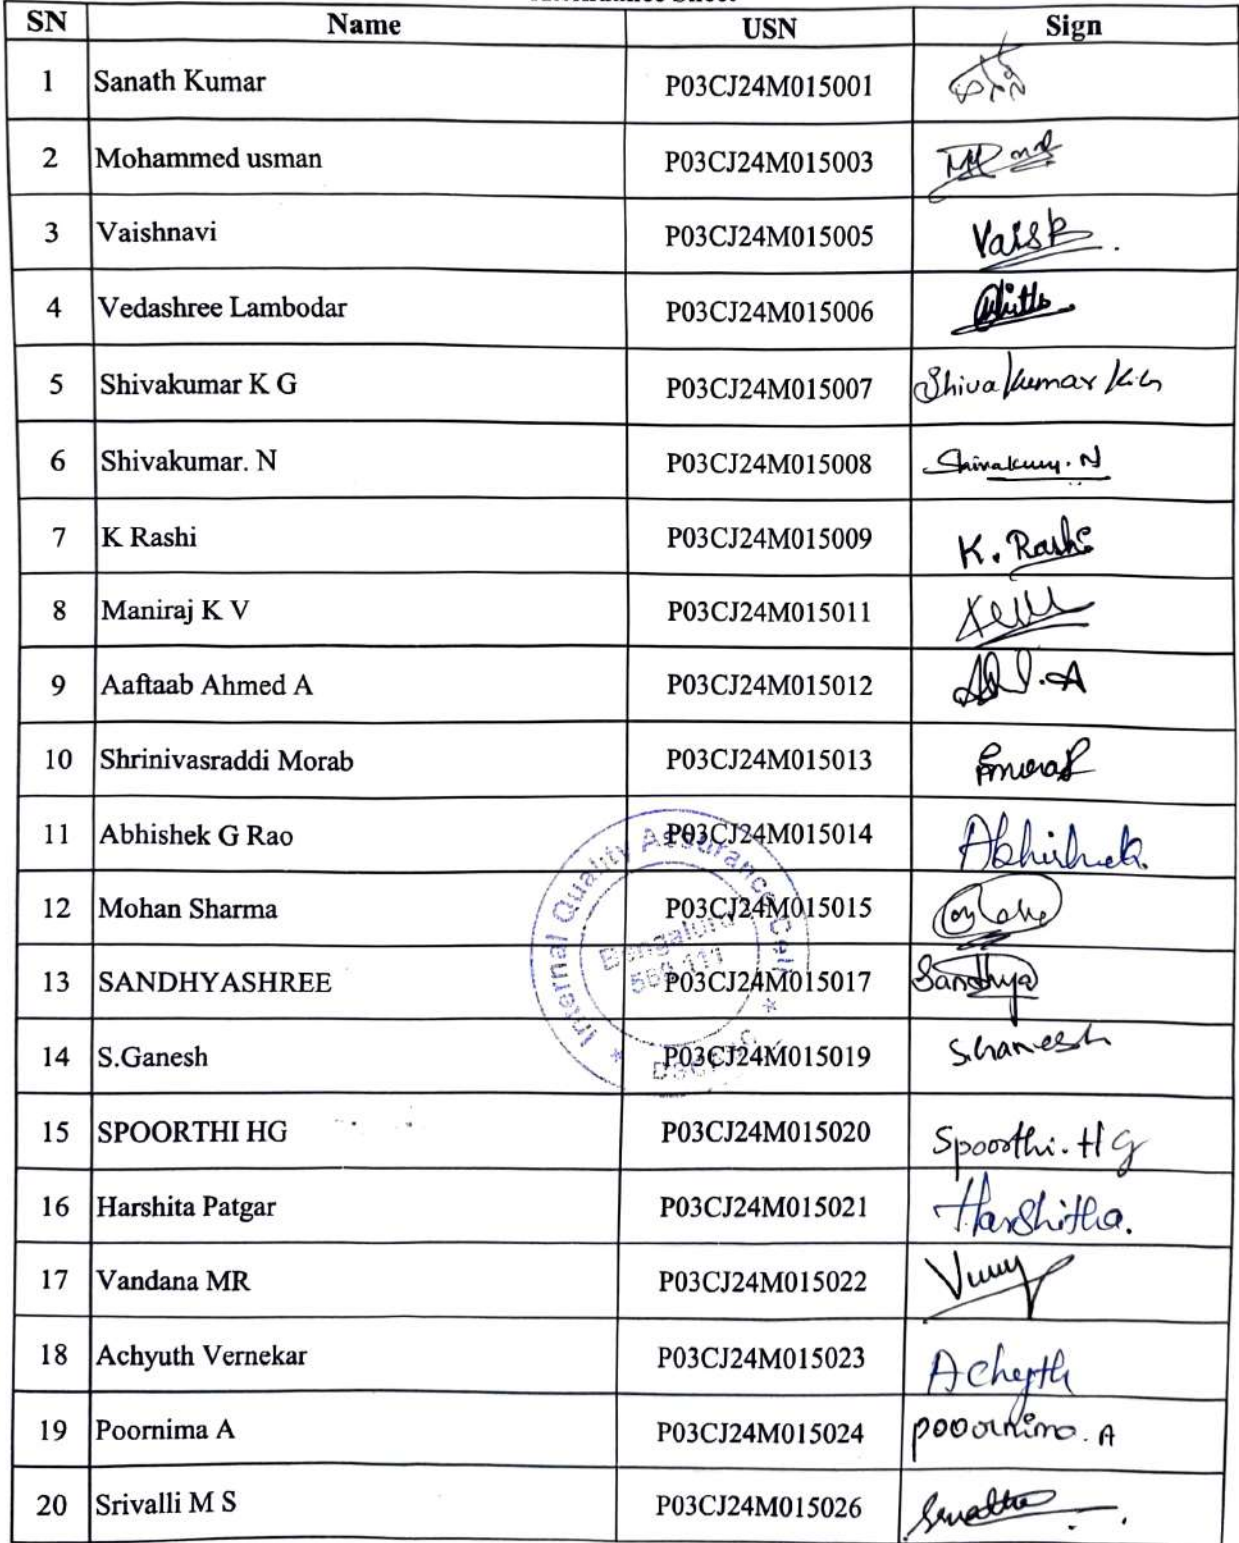 Attendance Sheet
SN Name USN Sign
1 Sanath Kumar P03CJ24M015001
2 Mohammed usman P03CJ24M015003
3 Vaishnavi P03CJ24M015005
4 Vedashree Lambodar P03CJ24M015006
5 Shivakumar K G P03CJ24M015007 Shivakumar K.G
6 Shivakumar. N P03CJ24M015008 Shivakumar. N
7 K Rashi P03CJ24M015009 K. Rashi
8 Maniraj K V P03CJ24M015011
9 Aaftaab Ahmed A P03CJ24M015012
10 Shrinivasraddi Morab P03CJ24M015013
11 Abhishek G Rao P03CJ24M015014 Abhishek
12 Mohan Sharma P03CJ24M015015
13 SANDHYASHREE P03CJ24M015017 Sandhya
14 S.Ganesh P03CJ24M015019 S.Ganesh
15 SPOORTHI HG P03CJ24M015020 Spoorthi. H G
16 Harshita Patgar P03CJ24M015021 Harshitha.
17 Vandana MR P03CJ24M015022
18 Achyuth Vernekar P03CJ24M015023 Achyuth
19 Poornima A P03CJ24M015024 Poornima. A
20 Srivalli M S P03CJ24M015026
Internal Quality Assurance Cell
Bengaluru